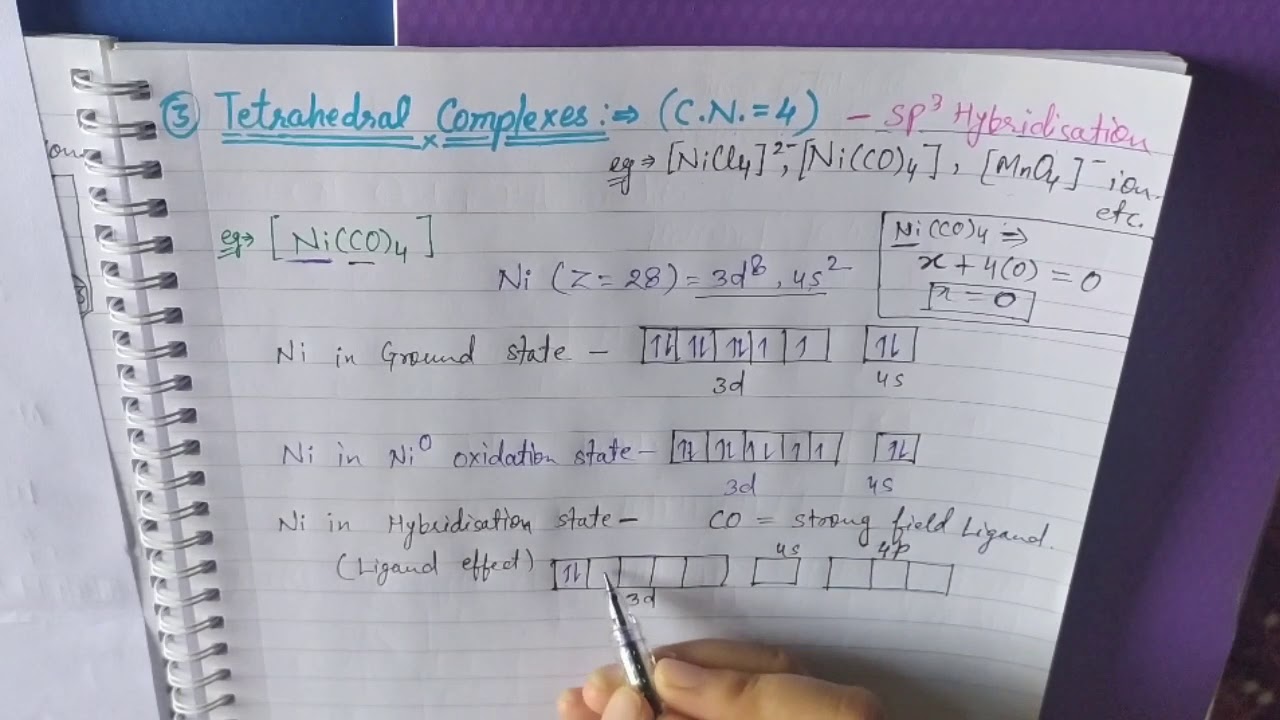 ③ Tetrahedral Complexes :⇒ (C.N.=4) - sp³ Hybridisation
eg → [NiCl4]²⁻, [Ni(CO)4], [MnO4]⁻ ion
etc.
eg→ [Ni(CO)4]
Ni(CO)4 ⇒
x + 4(0) = 0
x = 0
Ni (Z=28) = 3d⁸, 4s²
Ni in Ground state - ↿⇂ ↿⇂ ↿⇂ ↿ ↿ ↿⇂
3d 4s
Ni in Ni⁰ oxidation state - ↿⇂ ↿⇂ ↿⇂ ↿ ↿ ↿⇂
3d 4s
Ni in Hybridisation state - CO = strong field Ligand.
(Ligand effect) ↿⇂ 4s 4p
3d